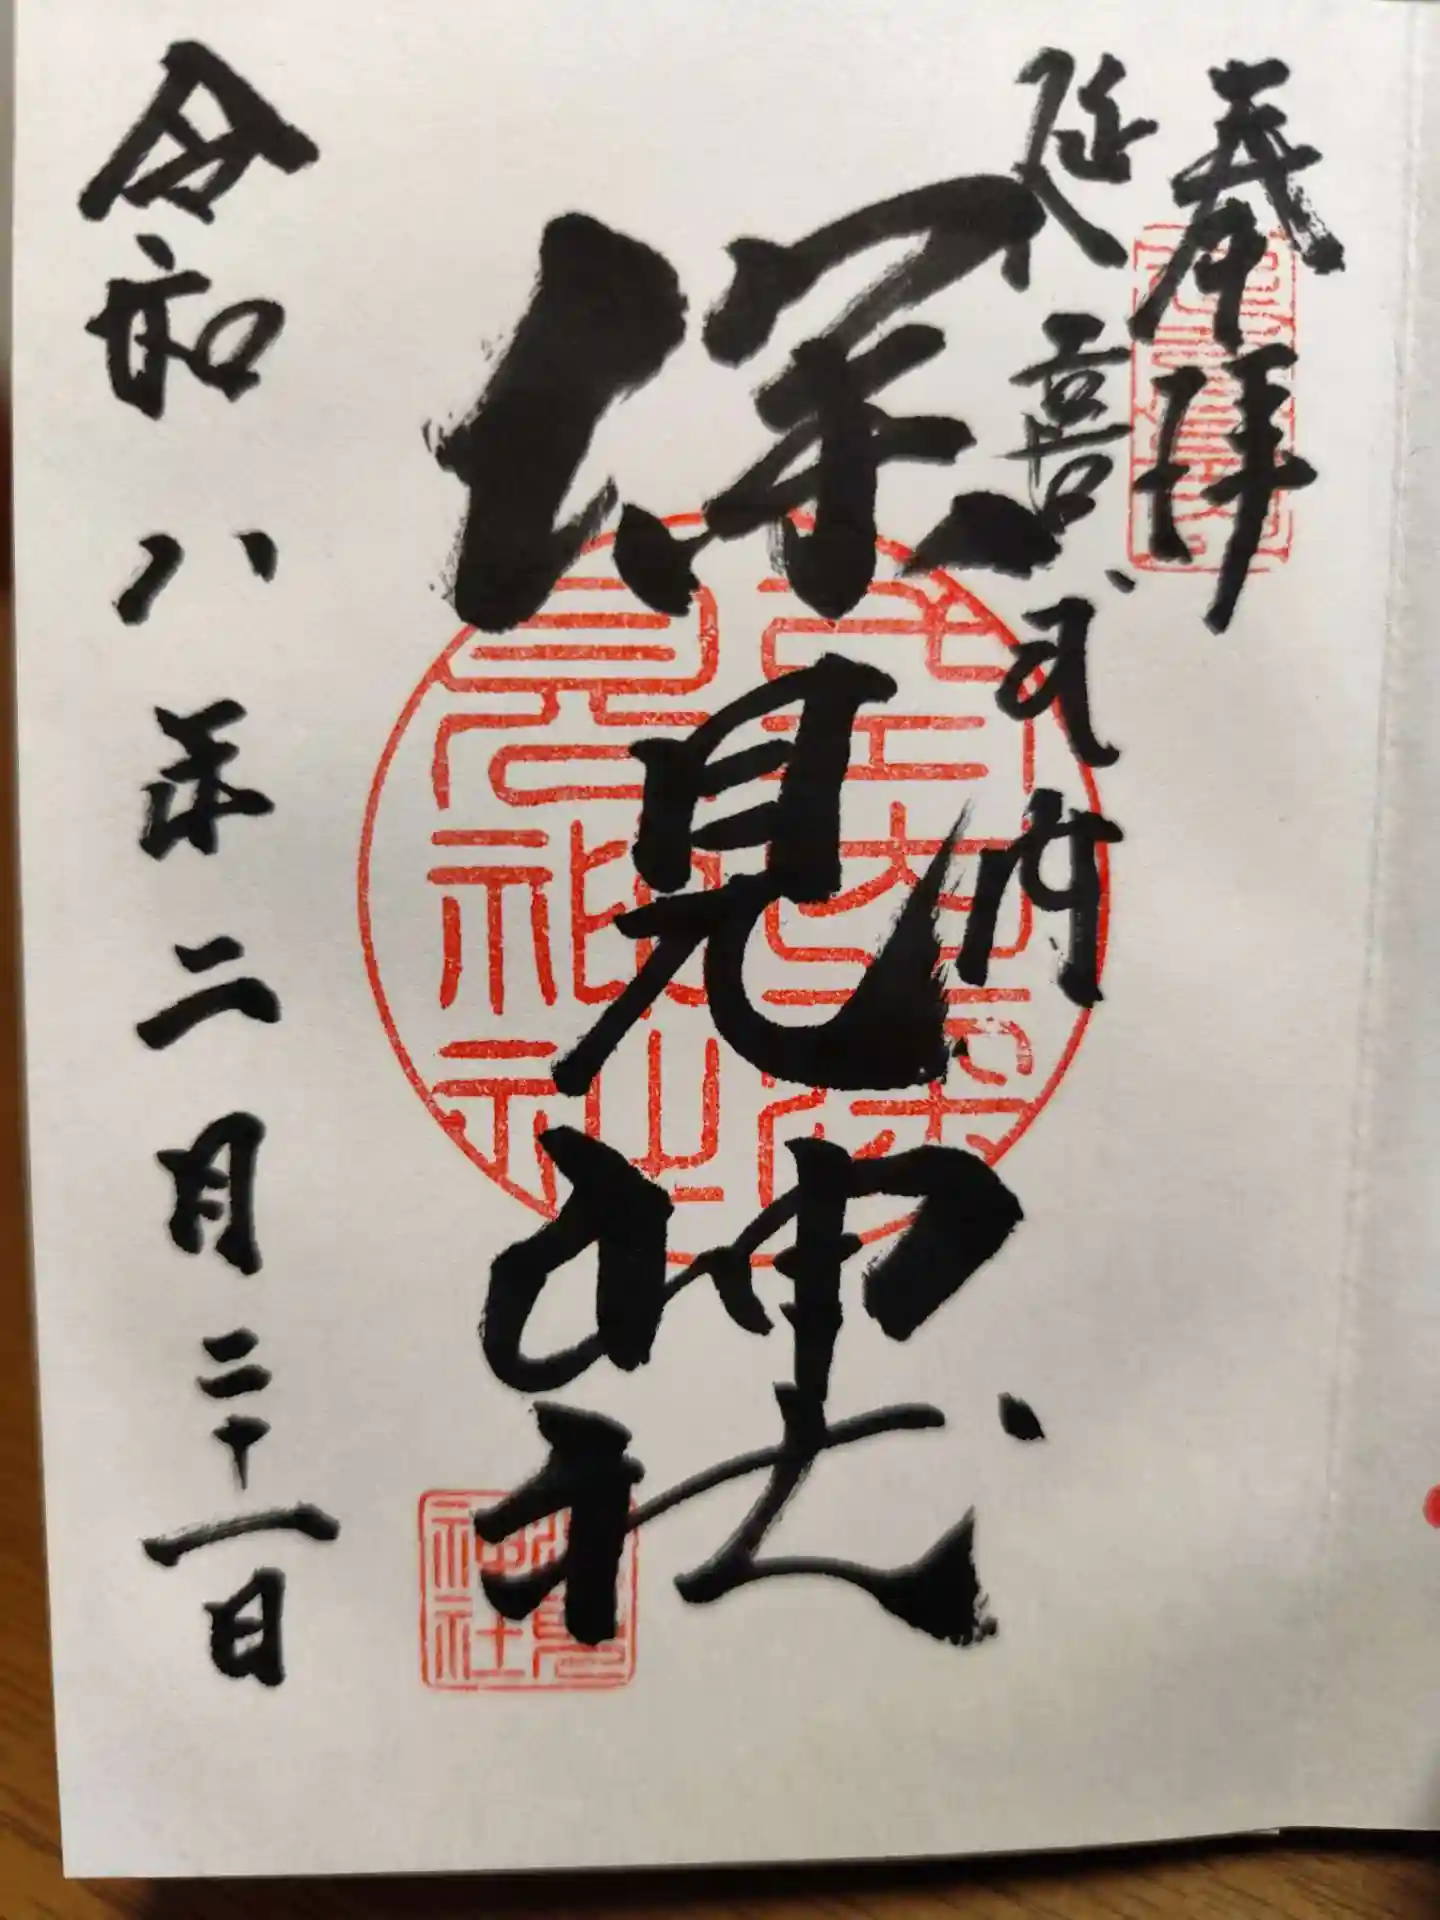 奉拝
延喜式内
深見神社
令和八年二月二十一日
深見
神社